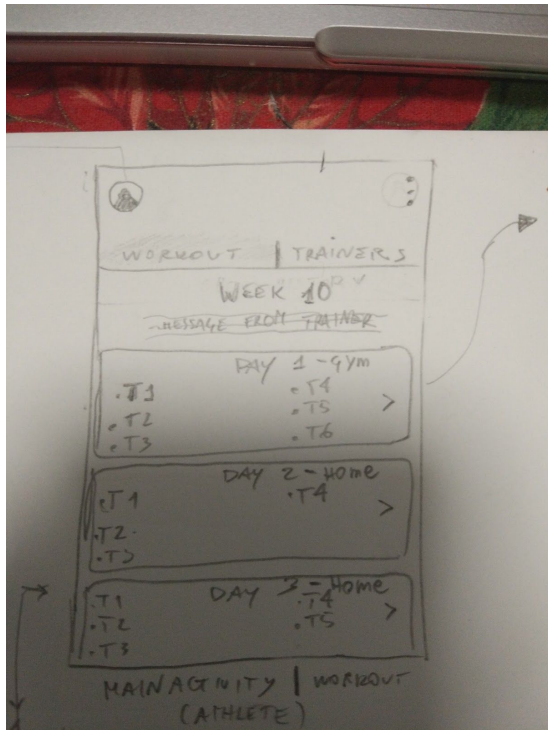 WORKOUT | TRAINERS
WEEK 10
MESSAGE FROM TRAINER
DAY 1 - Gym
.T1 .T4
.T2 .T5
.T3 .T6
>
DAY 2 - Home
.T1 .T4
.T2
.T3
>
DAY 3 - Home
.T1 .T4
.T2 .T5
.T3
>
MAINACTIVITY | WORKOUT
(ATHLETE)